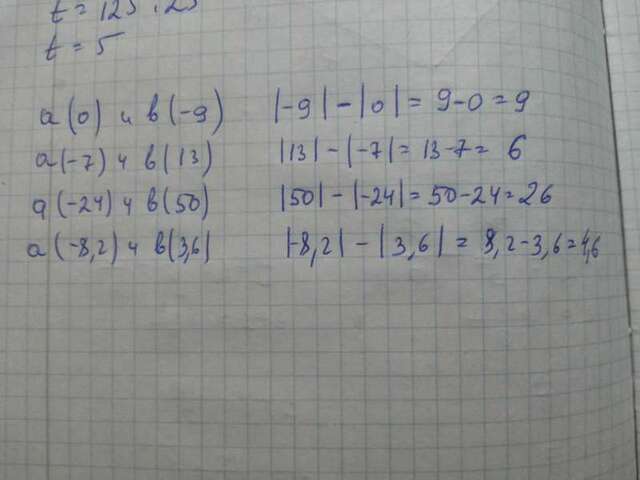 t = 125 : 25
t = 5
a (0) и b (-9) |-9| - |0| = 9-0 = 9
a(-7) и b(13) |13| - |-7| = 13-7= 6
a(-24) и b(50) |50| - |-24| = 50-24=26
a(-8,2) и b(3,6) |-8,2| - |3,6| = 8,2-3,6=4,6